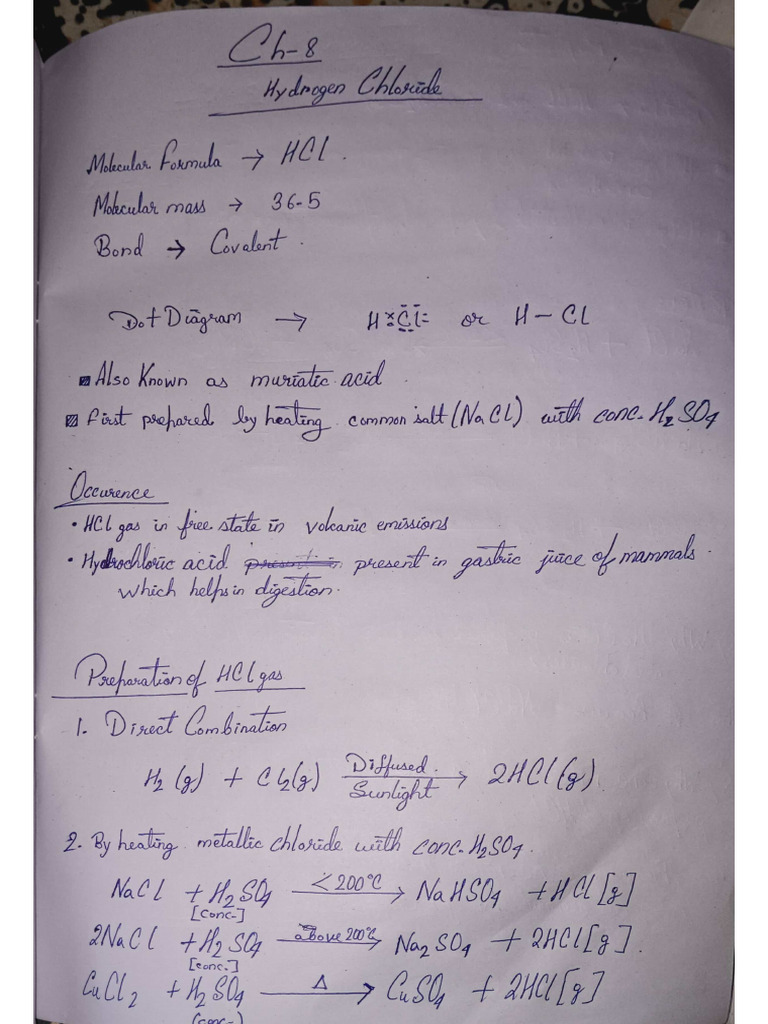 Ch-8
Hydrogen Chloride
Molecular Formula → HCl.
Molecular mass → 36-5
Bond → Covalent.
Dot Diagram → H Cl or H - Cl
Also Known as muriatic acid.
First prepared by heating common salt (NaCl) with conc. H₂SO₄
Occurence
• HCl gas in free state in volcanic emissions
• Hydrochloric acid present in gastric juice of mammals.
which helps in digestion.
Preparation of HCl gas
1. Direct Combination
H₂(g) + Cl₂(g) Diffused Sunlight → 2HCl(g)
2. By heating metallic chloride with conc. H₂SO₄.
NaCl + H₂SO₄ [Conc.] <200°C → NaHSO₄ + HCl[g]
2NaCl + H₂SO₄ [conc.] above 200°C → Na₂SO₄ + 2HCl[g].
CuCl₂ + H₂SO₄ (conc.) Δ → CuSO₄ + 2HCl[g]